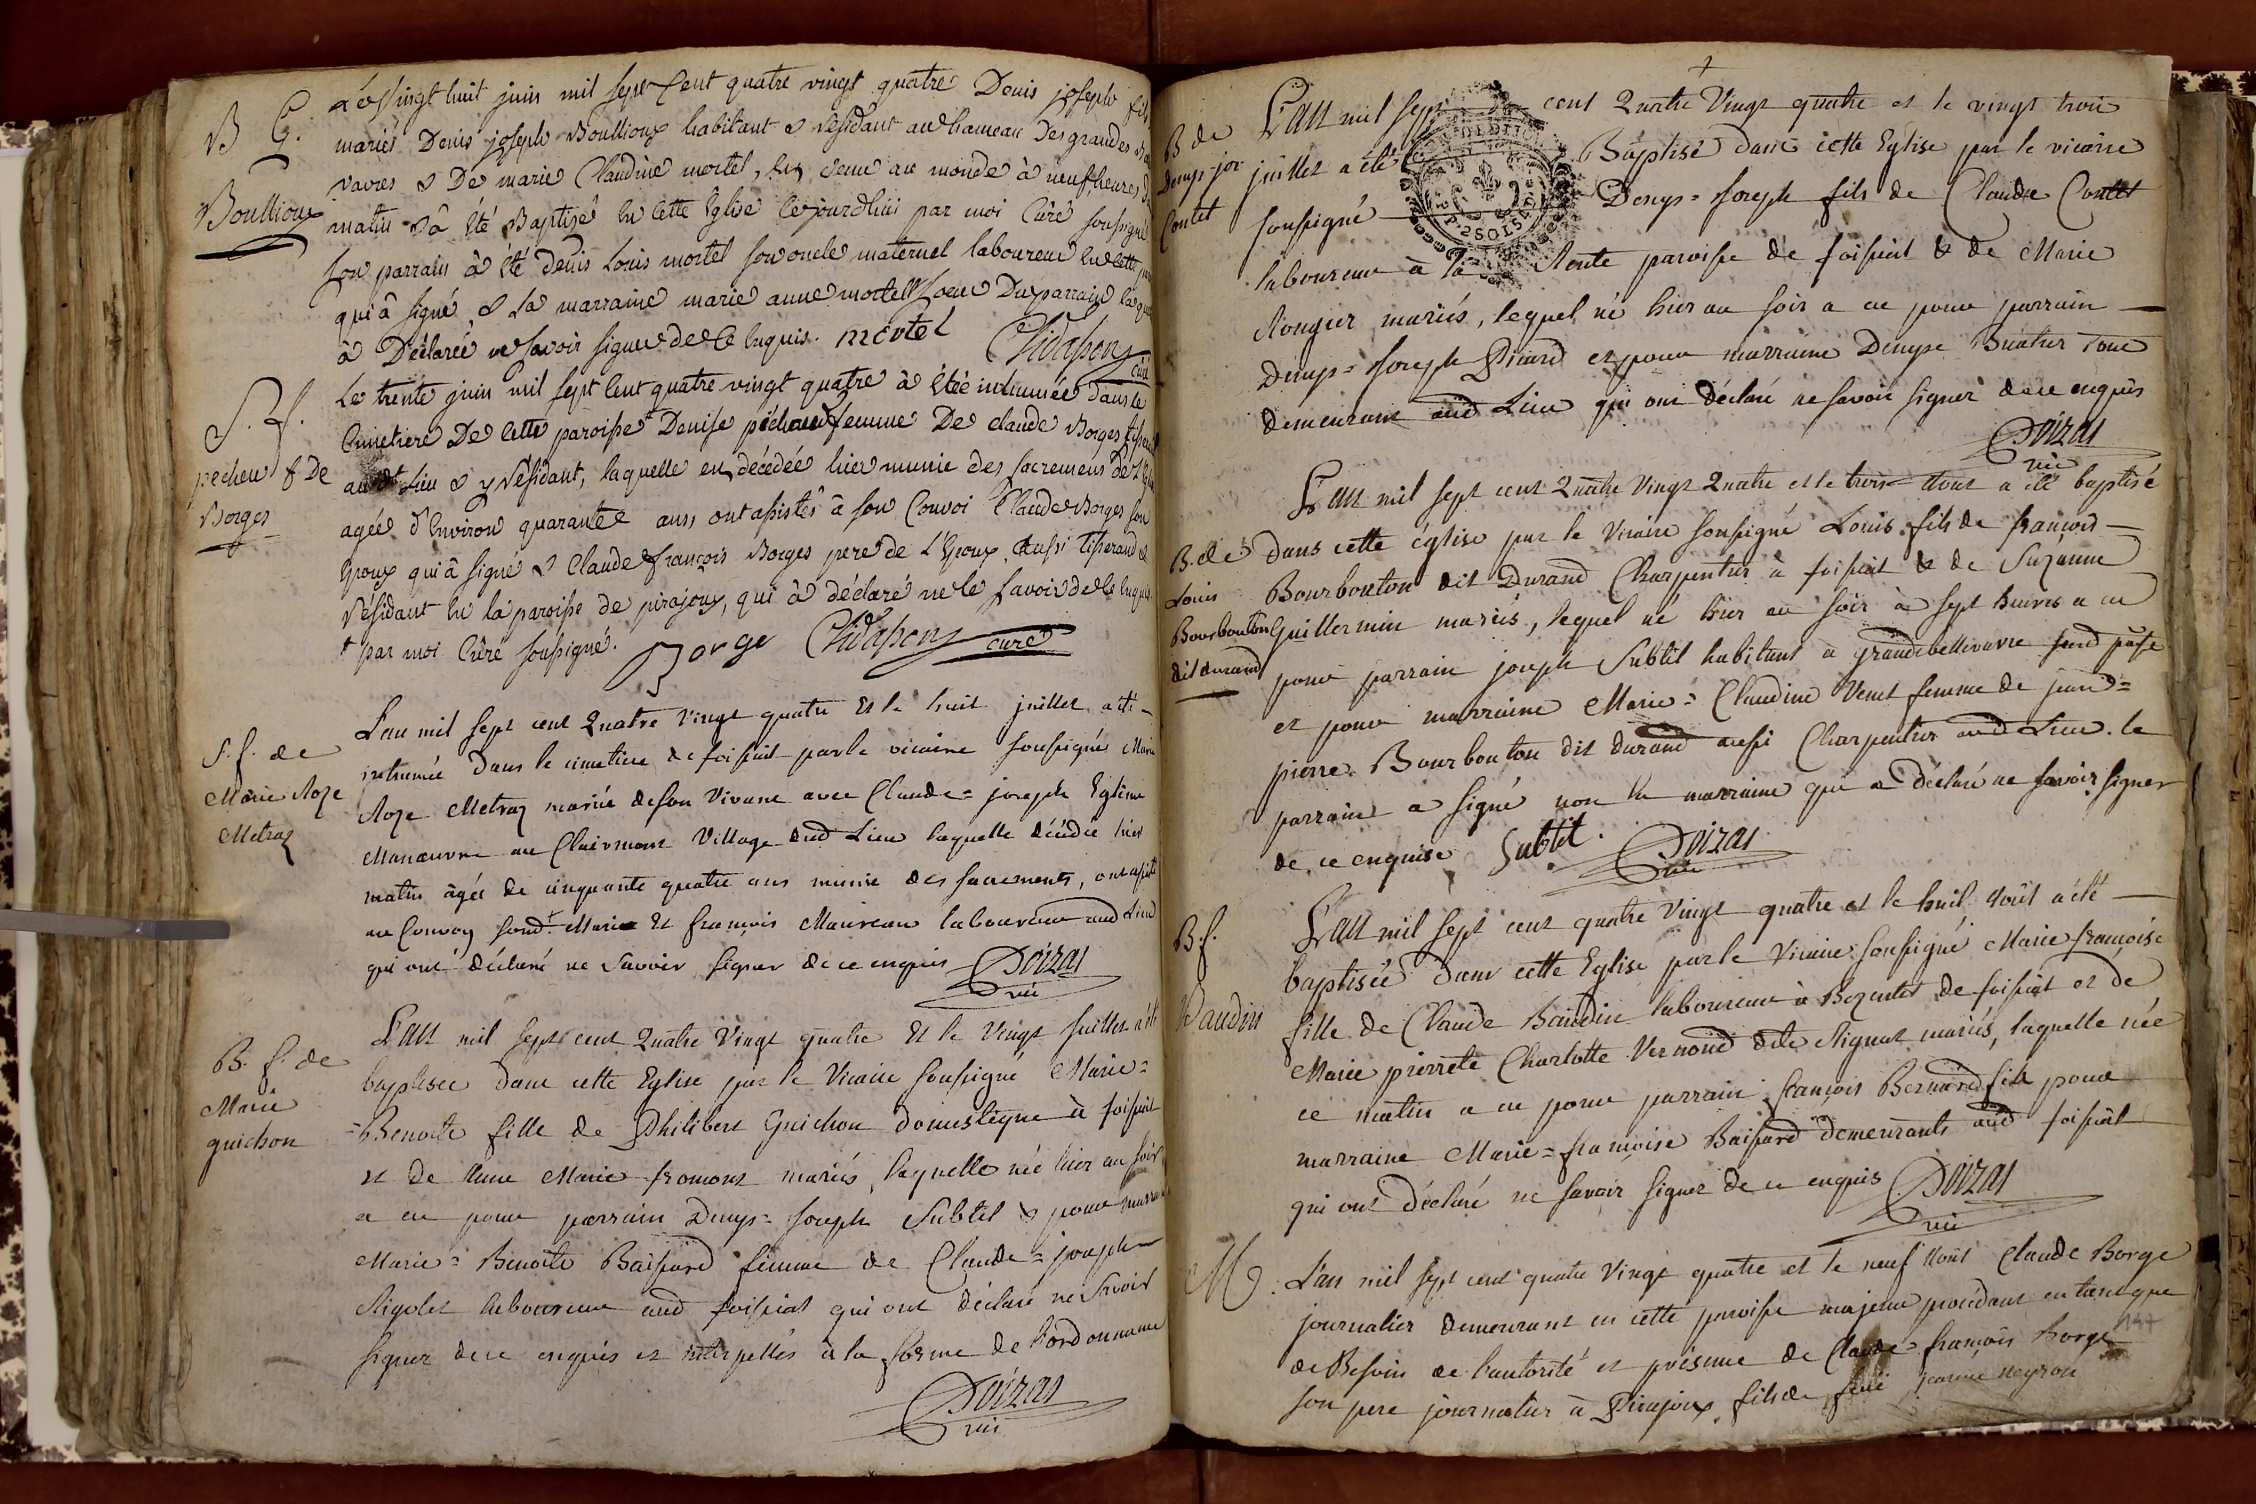 B G.
Boullioux
Le Vingt huit juin mil sept Cent quatre vingt quatre Denis joseph fils
mariés Denis joseph Boullioux habitant & résidant au hameau des grandes
vavres & De marie Claudine mortel, est venu au monde à neuf heures du
matin & â été Baptizé en cette Eglise Cejourdhui par moi Curé soussigné
son parrain â été denis Louis mortel son oncle maternel laboureur en cette
qui â signé & la marraine marie anne mortel soeur Du parrain
â Déclarée ne savoir signer de Ce enquis. mortel Chidaponz
curé
S. f.
pecheux f De
Borges
Le trente juin mil sept Cent quatre vingt quatre â étée inhumée dans le
Cimetiere De Cette paroisse + Denise pécheux femme De claude Borges
audt Lieu & y résidant, laquelle est décédée hier munie des sacremens de
agée d'Environ quarante ans ont assistés â son Convoi Claude Borges son
Epoux qui â signé & Claude françois Borges pere de L'Epoux Aussi tisserand
résidant en la paroisse de pirajoux, qui â déclaré ne le savoir de Ce enquis
+ par moi Curé soussigné. Borge Chidaponz curé
S. f. de
Marie Roze
Metraz
L'an mil sept cent Quatre Vingt quatre Et le huit juillet a été
inhumée dans le cimetiere de foissiat par le vicaire soussigné Marie
Roze Metraz mariée de son Vivant avec Claude = joseph Egline
Manœuvre au Clairmont Village aud Lieu laquelle décédée hier
matin âgée de cinquante quatre ans munie des sacrements, ont assisté
au Convoy sond. Mari Et françois Maireau laboureur aud Lieu
qui ont déclaré ne savoir signer de ce enquis Doizas
vic
B. f. de
Marie
guichon
L'an mil sept cent Quatre Vingt quatre Et le Vingt juillet a été
baptisée dans cette Eglise par le Vicaire soussigné Marie =
= Benoite fille de Philibert Guichon domestique à foissiat
et de Anne Marie fromont mariés, laquelle née hier au soir
a eu pour parrain Denys = Joseph Subtil & pour marraine
Marie = Benoite Baissard femme de Claude = joseph
Rigolet laboureur aud foissiat qui ont déclaré ne savoir
signer de ce enquis et interpellés à la forme de l'ordonnance
Doizas
vic
B de
Denys jos
Contet
L'an mil sept cent Quatre Vingt quatre et le vingt trois
juillet a été Baptisé dans cette Eglise par le vicaire
soussigné Denys = Joseph fils de Claude Contet
laboureur à la Rente paroisse de foissiat & de Marie
Rongier mariés, lequel né hier au soir a eu pour parrain
Denys = Joseph Picard et pour marraine Denyse Buatier Tous
demeurant aud Lieu qui ont déclaré ne savoir signer de ce enquis
Doizas
vic
B. de
Louis
Bourbouton
dit durand
L'an mil sept cent Quatre Vingt Quatre et le trois Aout a été baptisé
dans cette église par le Vicaire soussigné Louis fils de françois
Bourbouton dit Durand Charpentier à foissiat & de Suzanne
Guillermin mariés, lequel né hier au soir à sept heures a eu
pour parrain joseph Subtil habitant a grande bellevavre
et pour marraine Marie = Claudine Venet femme de jean =
pierre Bourbouton dit durand aussi Charpentier aud Lieu. le
parrain a signé non la marraine qui a déclaré ne savoir signer
de ce enquise Subtil. Doizas
vic
B. f.
Baudin
L'an mil sept cent quatre Vingt quatre et le huit Août a été
baptisée dans cette Eglise par le Vicaire soussigné Marie françoise
fille de Claude Baudin laboureur à Bezentet de foissiat et de
Marie pierrete Charlotte Vernoud dite Rignat mariés, laquelle née
ce matin a eu pour parrain françois Bernard fils pour
marraine Marie = françoise Baissard demeurants aud foissiat
qui ont déclaré ne savoir signer de ce enquis Doizas
vic
M.
L'an mil sept cent quatre Vingt quatre et le neuf Août Claude Borge
journalier demeurant en cette paroisse majeur procédant en tant que
de Besoin de l'autorité et présence de Claude = françois Borge
son pere journalier à Pirajoux, fils de feüe jeanne neyron